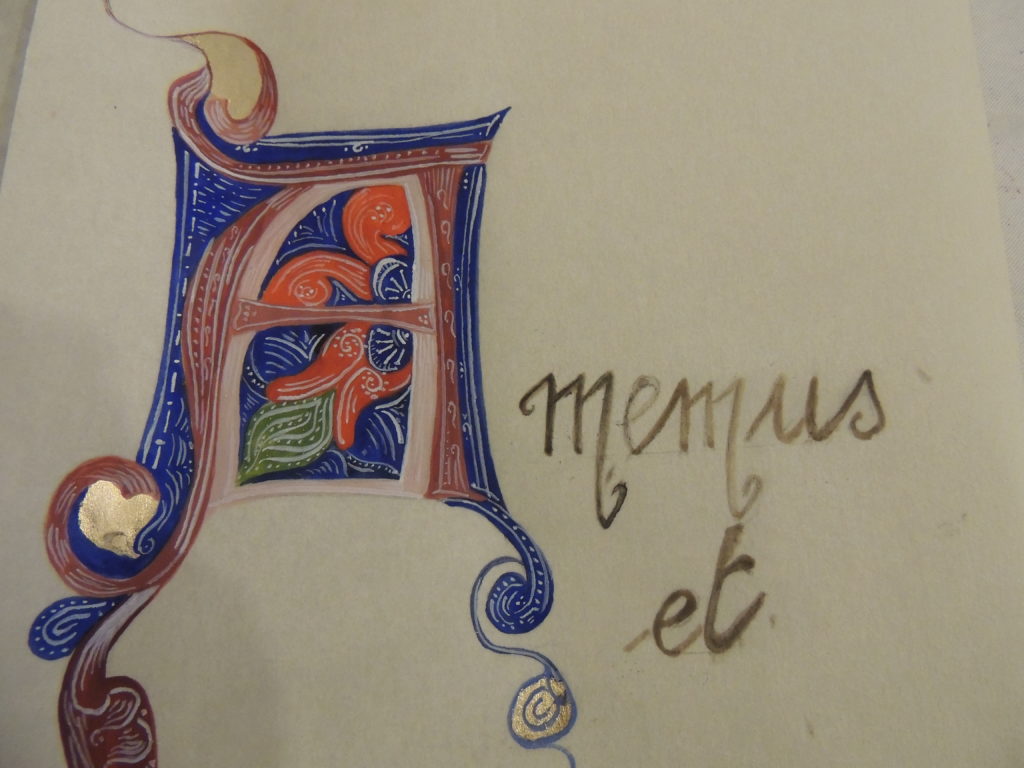 Amemus
et